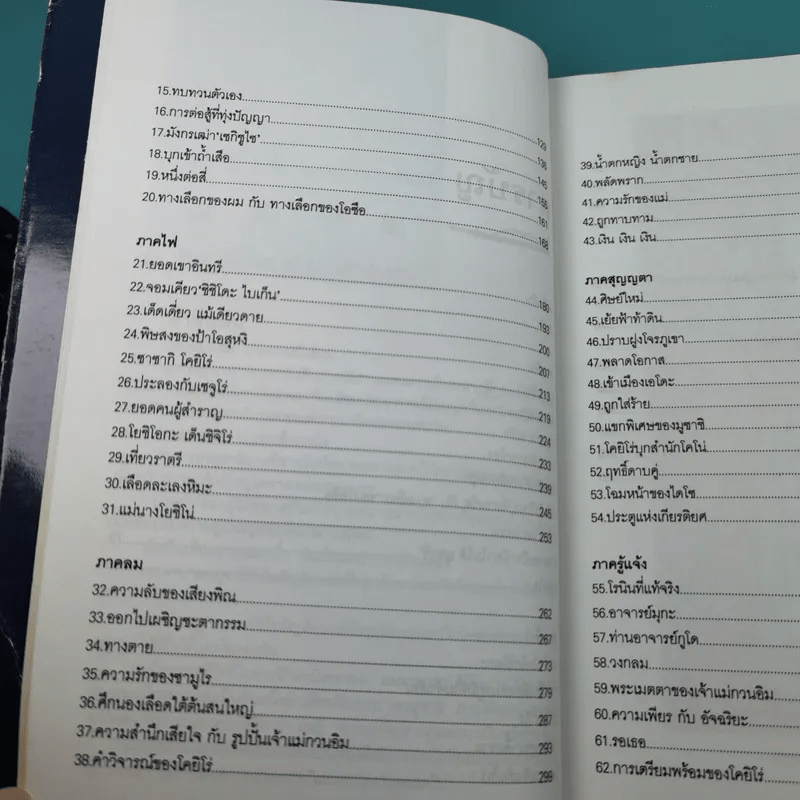 15.ทบทวนตัวเอง
16.การต่อสู้ที่ทุ่งปัญญา 129
17.มังกรเฒ่า‘เซกิชูไซ’ 136
18.บุกเข้าถ้ำเสือ 146
19.หนึ่งต่อสี่ 155
20.ทางเลือกของผม กับ ทางเลือกของโอซือ 161
168
ภาคไฟ
21.ยอดเขาอินทรี
22.จอมเคียว‘ชิชิโดะ ไบเก็น’ 180
23.เด็ดเดี่ยว แม้เดียวดาย 193
24.พิษสงของป้าโอสุหงิ 200
25.ซาซากิ โคยิโร่ 207
26.ประลองกับเซจูโร่ 213
27.ยอดคนผู้สำราญ 219
28.โยชิโอกะ เด็นชิจิโร่ 224
29.เที่ยวราตรี 233
30.เลือดละเลงหิมะ 239
31.แม่นางโยชิโน่ 245
253
ภาคลม
32.ความลับของเสียงพิณ 262
33.ออกไปเผชิญชะตากรรม 267
34.ทางตาย 273
35.ความรักของซามูไร 279
36.ศึกนองเลือดใต้ต้นสนใหญ่ 287
37.ความสำนึกเสียใจ กับ รูปปั้นเจ้าแม่กวนอิม 293
38.คำวิจารณ์ของโคยิโร่ 299
39.น้ำตกหญิง น้ำตกชาย
40.พลัดพราก
41.ความรักของแม่
42.ถูกทาบทาม
43.เงิน เงิน เงิน
ภาคสุญญตา
44.ศิษย์ใหม่
45.เย้ยฟ้าท้าดิน
46.ปราบฝูงโจรภูเขา
47.พลาดโอกาส
48.เข้าเมืองเอโดะ
49.ถูกใส่ร้าย
50.แขกพิเศษของมูซาชิ
51.โคยิโร่บุกสำนักโคโน่
52.ฤทธิ์ดาบคู่
53.โฉมหน้าของไดโซ
54.ประตูแห่งเกียรติยศ
ภาครู้แจ้ง
55.โรนินที่แท้จริง
56.อาจารย์มุกะ
57.ท่านอาจารย์กูโด
58.วงกลม
59.พระเมตตาของเจ้าแม่กวนอิม
60.ความเพียร กับ อัจฉริยะ
61.รอเธอ
62.การเตรียมพร้อมของโคยิโร่